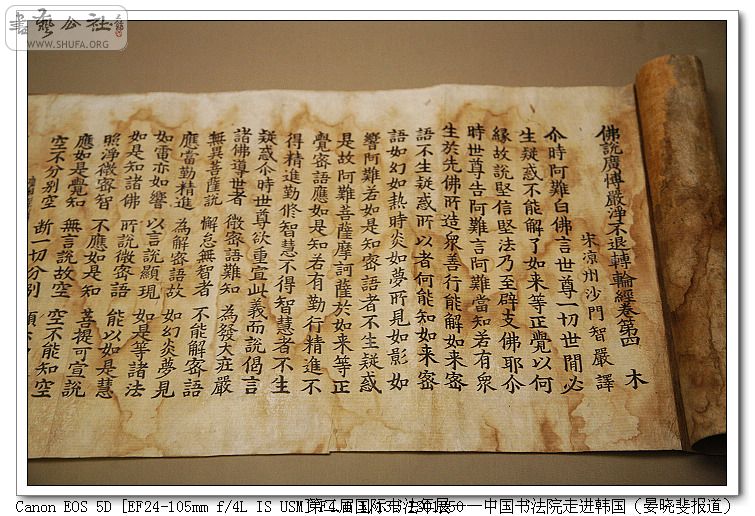 書藝公社
WWW.SHUFA.ORG
佛說廣博嚴淨不退轉輪經卷第四 木
宋涼州沙門智嚴譯
尒時阿難白佛言世尊一切世間必
生疑惑不能解了如来等正覺以何
緣故說堅信堅法乃至辟支佛耶尒
時世尊告阿難言阿難當知若有衆
生於先佛所造衆善行能解如来密
語不生疑惑所以者何能知如来密
語如幻如熱時炎如夢所見如影如
響阿難若如是知密語者不生疑惑
是故阿難菩薩摩訶薩於如来等正
覺密語應如是知若有勤行精進不
得精進勤修智慧不得智慧者不生
疑惑尒時世尊欲重宣此義而說偈言
諸佛導世者 微密語難知 為發大莊嚴
無異菩薩說 懈怠無智者 不能解密語
應當勤精進 為解密語故 如幻炎夢見
如電亦如響 以言說顯現 如是等諸法
如是知諸佛 所說微密語 能以如是慧
照淨微密智 不應如是知 菩提可宣說
應如是覺知 無言說故空 空不能知空
空不分別空 斷一切分別
Canon EOS 5D [EF24-105mm f/4L IS USM] 第二届国际书法年展——中国书法院走进韩国（晏晓斐报道）